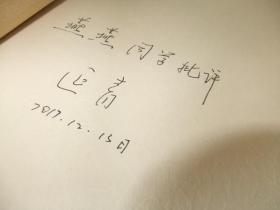 燕燕同学批评
匡青
2017.12.15日